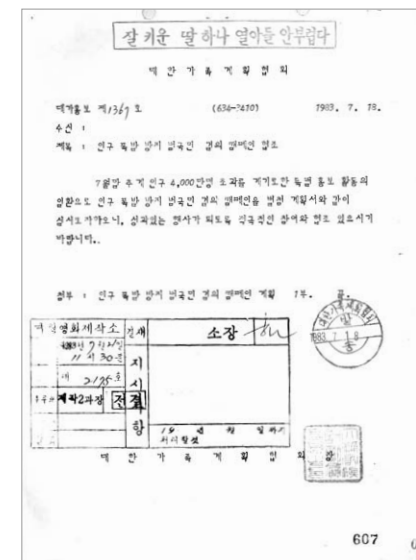 잘 키운 딸 하나 열아들 안부럽다
대 한 가 족 계 획 협 회
대가홍보 제1367 호 (634-7410) 1983. 7. 18.
수신 :
제목 : 인구 폭발 방지 범국민 결의 캠페인 협조
7월말 추계 인구 4,000만명 초과를 계기로한 특별 홍보 활동의
일환으로 인구 폭발 방지 범국민 결의 캠페인을 별첨 계획서와 같이
실시토자하오니, 성과있는 행사가 되도록 적극적인 참여와 협조 있으시기
바랍니다..
첨부 : 인구 폭발 방지 범국민 결의 캠페인 계획 1부. 끝.
영화제작소 결재 소장
1983년 7월 21일
11 시 30분 지
제 2195 호 시
제작2과장 전결
항 19 년 월 일까지
처리할것
1983. 7. 18
대 한 가 족 계 획 협 회 장
607